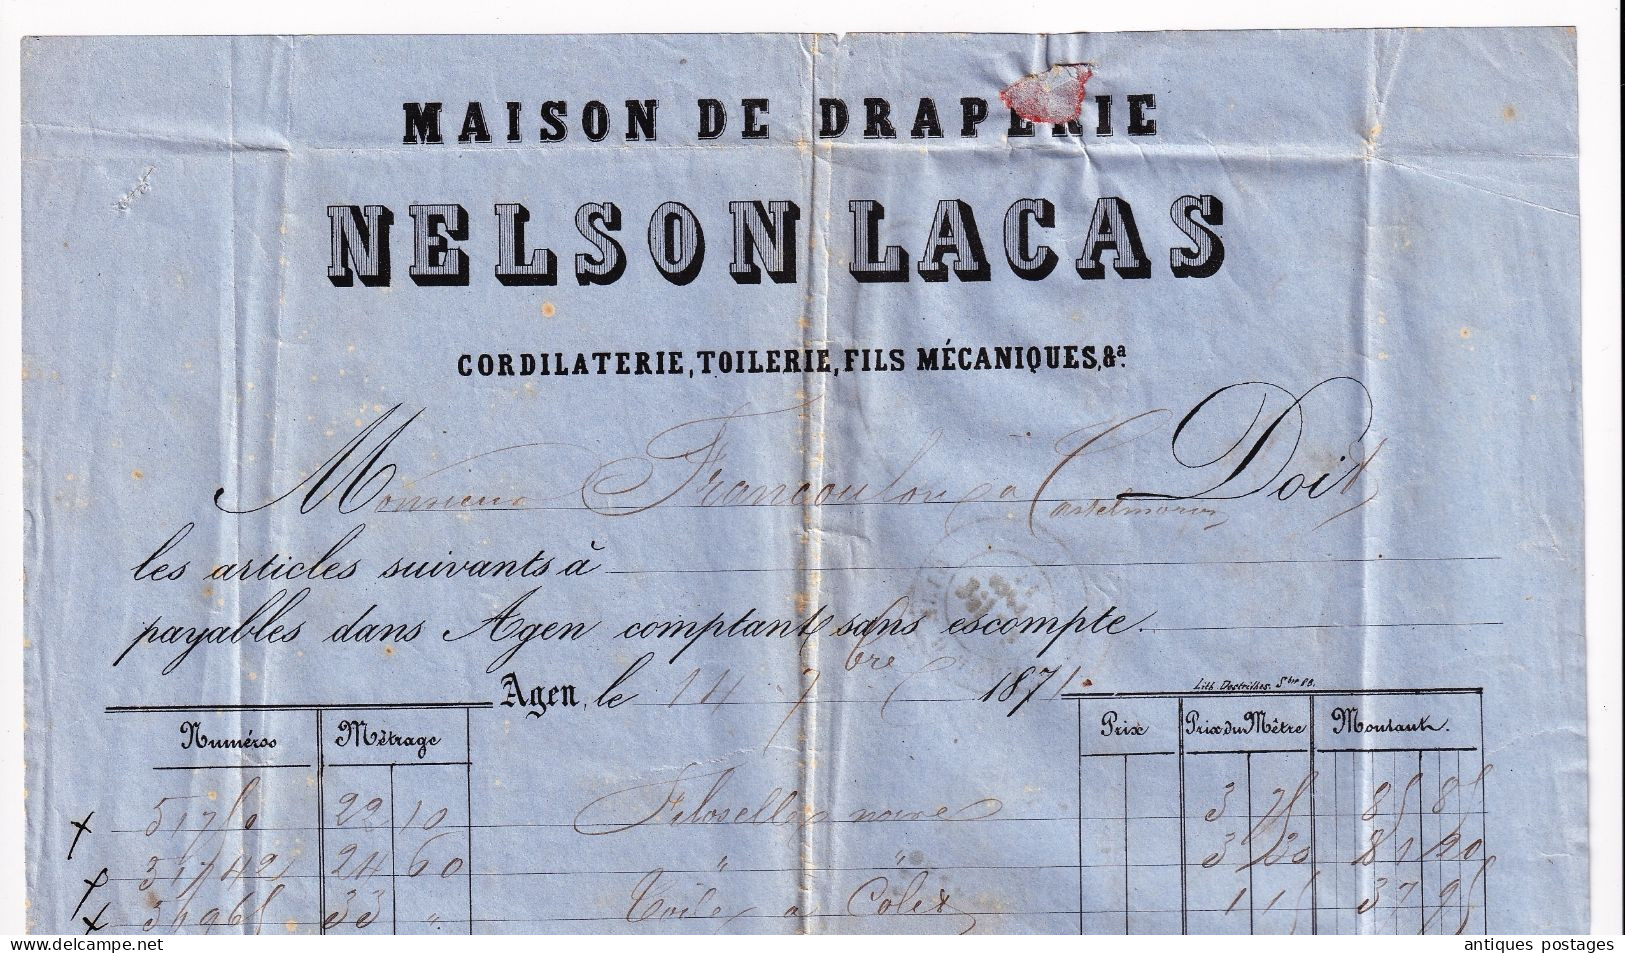 MAISON DE DRAPERIE
NELSON LACAS
CORDILATERIE, TOILERIE, FILS MÉCANIQUES, &ª.
Monsieur Francoulon à Castelmoron Doit
les articles suivants à
payables dans Agen comptant sans escompte.
Agen, le 14 7bre 1871.
Lith. Destrilhes. Sbre 88.
Numéros Métrage Prix Prix du Mètre Montant.
5175. 22 10 Filoselle noire 3 75 85 85
31742 24 60 " " 3 30 81 20
31965 33 " Toile à Colis 1 15 37 95
antiques postages
www.delcampe.net